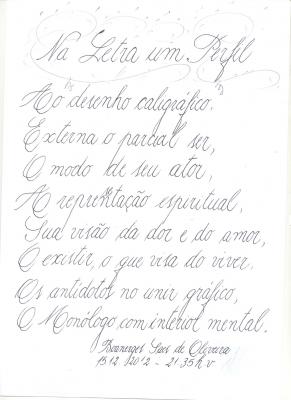 Na Letra um Perfil
Ao desenho caligráfico.
Externa o parcial ser,
O modo de seu ator,
A reprentação espiritual,
Sua visão da dor e do amor,
O existir, o que visa do viver.
Os antidotos no unir gráfico,
O Monólogo, com interior mental.
Boanerges Saes de Oliveira
13 12 2012 - 21:35 h v